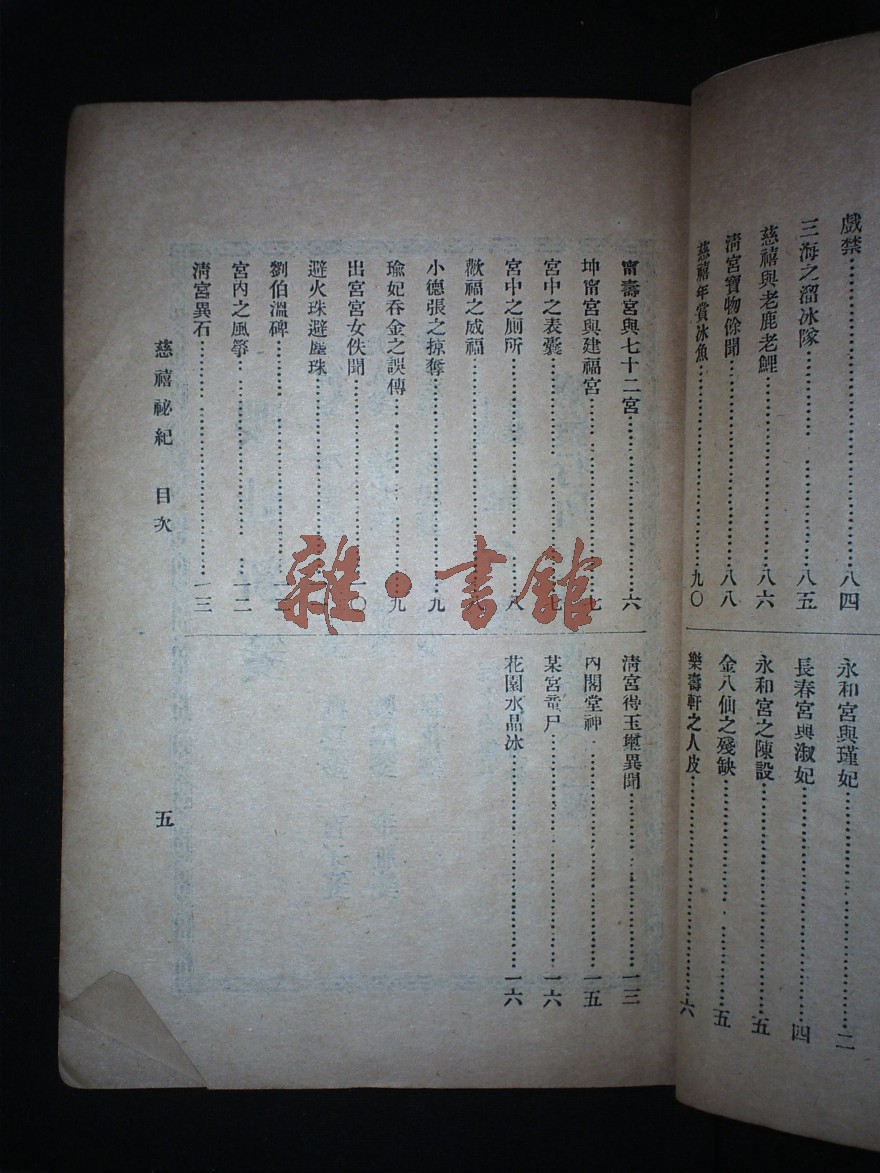 戲禁……八四
三海之溜冰隊……八五
慈禧與老鹿老鯉……八六
清宮寶物餘聞……八八
慈禧年賞冰魚……九〇
永和宮與瑾妃……二
長春宮與淑妃……四
永和宮之陳設……五
金八仙之殘缺……五
樂壽軒之人皮……六
甯壽宮與七十二宮……六
坤甯宮與建福宮……七
宮中之表囊……七
宮中之厠所……八
歡福之威福……八
小德張之掠奪……九
瑜妃吞金之誤傳……九
出宮宮女佚聞……一〇
避火珠避塵珠
劉伯溫碑
宮內之風箏……一二
清宮異石……一三
清宮待玉璽異聞……一三
內閣堂神……一五
某宮電尸……一六
花園水晶冰……一六
慈禧祕紀 目次 五
雜·書館